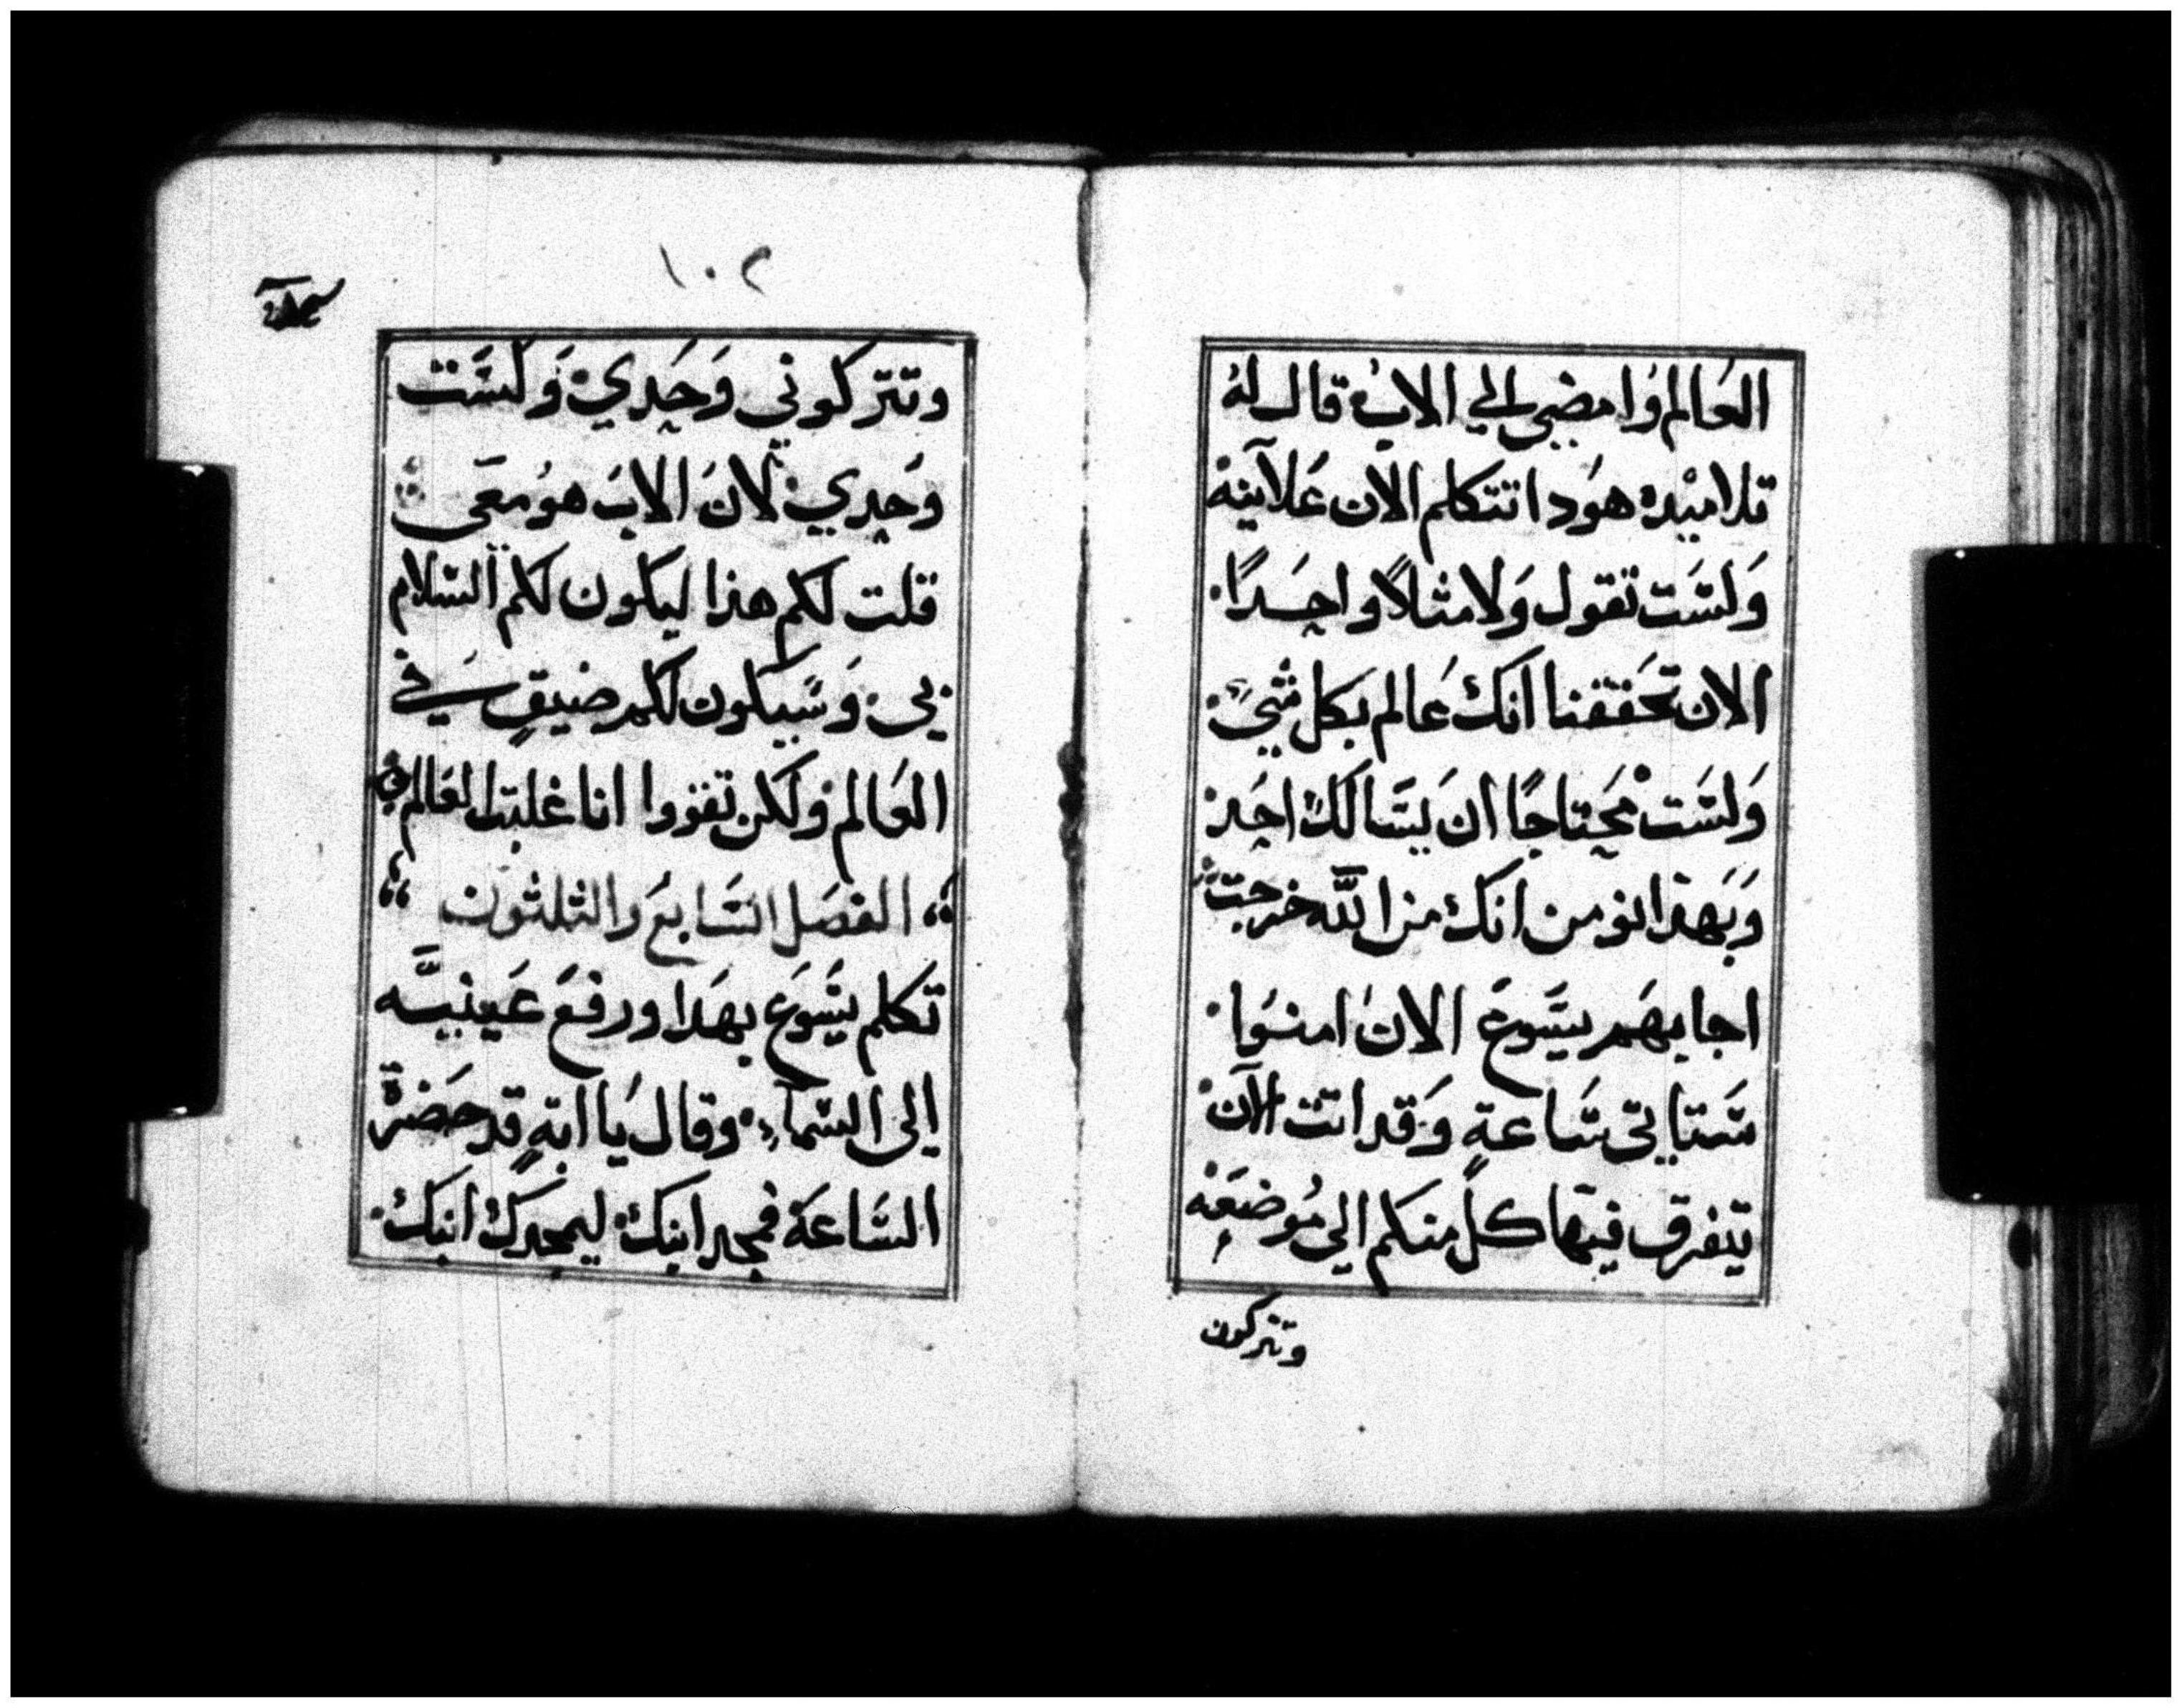 العَالم وَامضى الى الابْ قال لهُ
تلاميْده هوَدا تتكلم الان عَلآنية
وَلسَّت تقول وَلا مثالاً واحِدًا
الان تحَققنا انكَ عَالم بكل شيَء
وَلسَّت محَتاجًا ان يسَّالكَ احَد
وَبهَذا نومن انكَ من اللَّه خرجت
اجابهَم يسَّوعَ الان امنوا
سَّتاتى سَّاعة وَقد اتت الآن
يتفرق فيهَا كلٌ منكم الى مُوضعَه
وتتركون
١٠٢
وتتركوني وَحَدي وَلسَّت
وَحِدي لانَ الابَ هوُ معَى
قلت لكم هذا ليكون لكم السَّلام
بي وَسَّيكون لكم ضيقٍ في
العَالم ولكن تقووا انا غلبت العَالم
الفصَل السَّابعَ والثلثون
تكلم يسَّوعَ بهَدا ورفعَ عَينيَّه
الى السَّمآء وقال يَا ابةِ قد حَضرَة
السَّاعَة فمجد ابنكَ ليمجدكَ ابنكَ